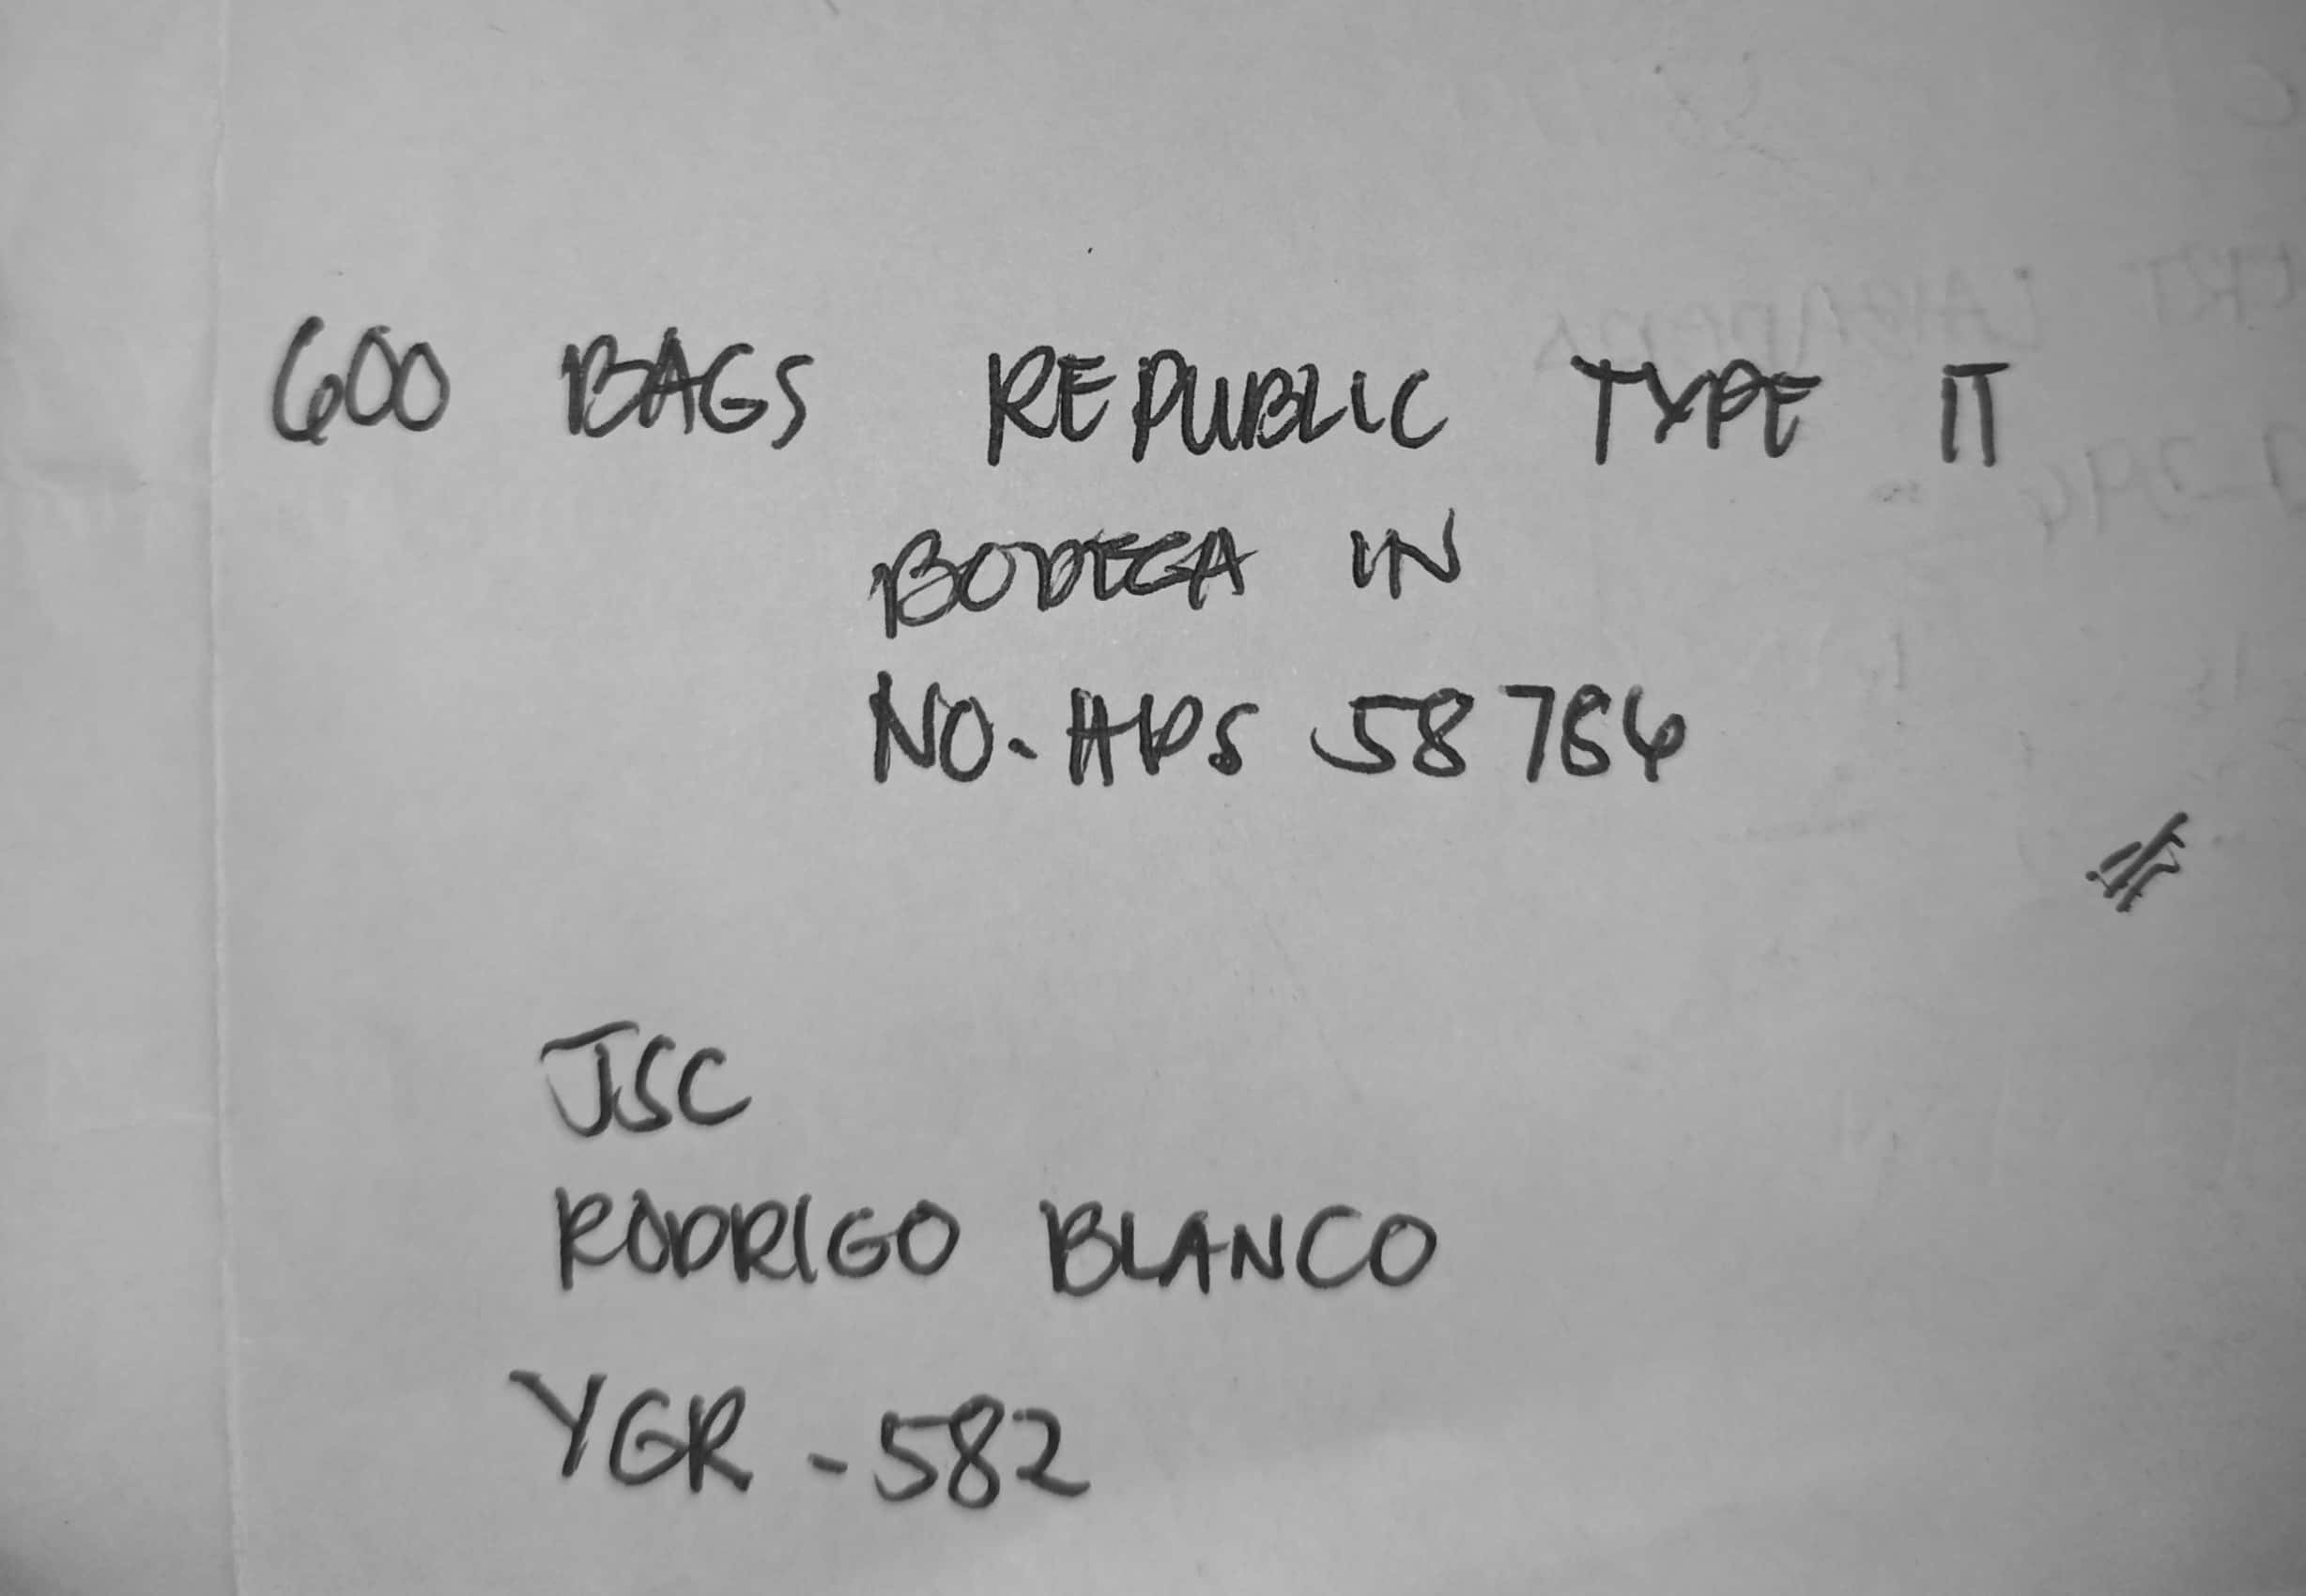 600 BAGS REPUBLIC TYPE II
BODEGA IN
NO. HDS 58784
JSC
RODRIGO BLANCO
YGR - 582